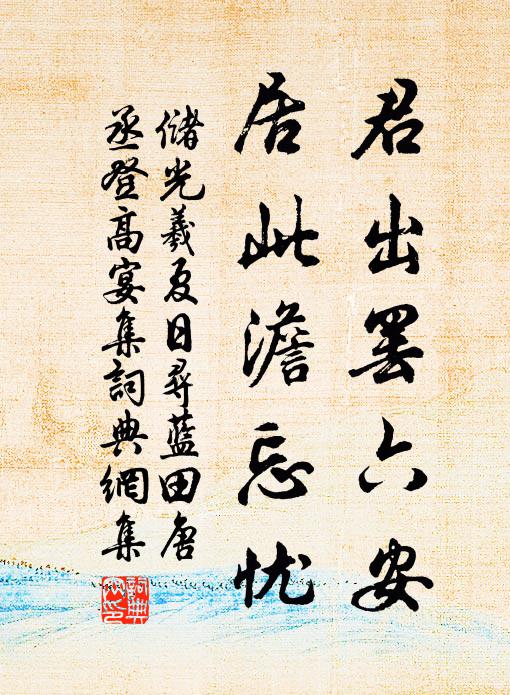 君出罢六安
居此澹忘忧
儲光羲夏日尋藍田唐
丞登高宴集詞典網集